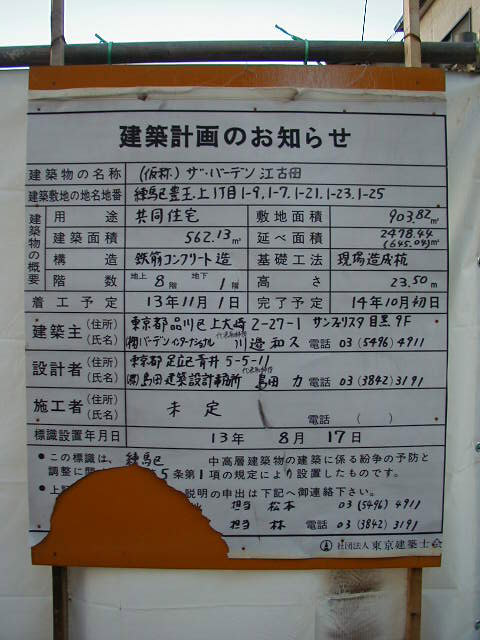 建築計画のお知らせ
建築物の名称 (仮称) ザ・バーデン江古田
建築敷地の地名地番 練馬区豊玉上1丁目1-9.1-7.1-21.1-23.1-25
建築物の概要
用途 共同住宅 敷地面積 903.82㎡
建築面積 562.13㎡ 延べ面積 2478.44 (645.04)㎡
構造 鉄筋コンクリート造 基礎工法 現場造成杭
階数 地上 8階 地下 1階 高さ 23.50m
着工予定 13年11月1日 完了予定 14年10月初日
建築主 (住所) 東京都品川区上大崎2-27-1 サンフェリスタ目黒9F
(氏名) (株)バーデンインターナショナル 代表取締役 川邉和久 電話 03(5496)4911
設計者 (住所) 東京都足立区青井5-5-11
(氏名) (有)島田建築設計事務所 代表取締役 島田 力 電話 03(3842)3191
施工者 (住所)
(氏名) 未定 電話 ( )
標識設置年月日 13年 8月 17日
●この標識は、練馬区 中高層建築物の建築に係る紛争の予防と
調整に関 5条第1項の規定により設置したものです。
●上記 説明の申出は下記へ御連絡下さい。
担当 松本 03(5496)4911
担当 林 電話 03(3842)3191
社団法人 東京建築士会